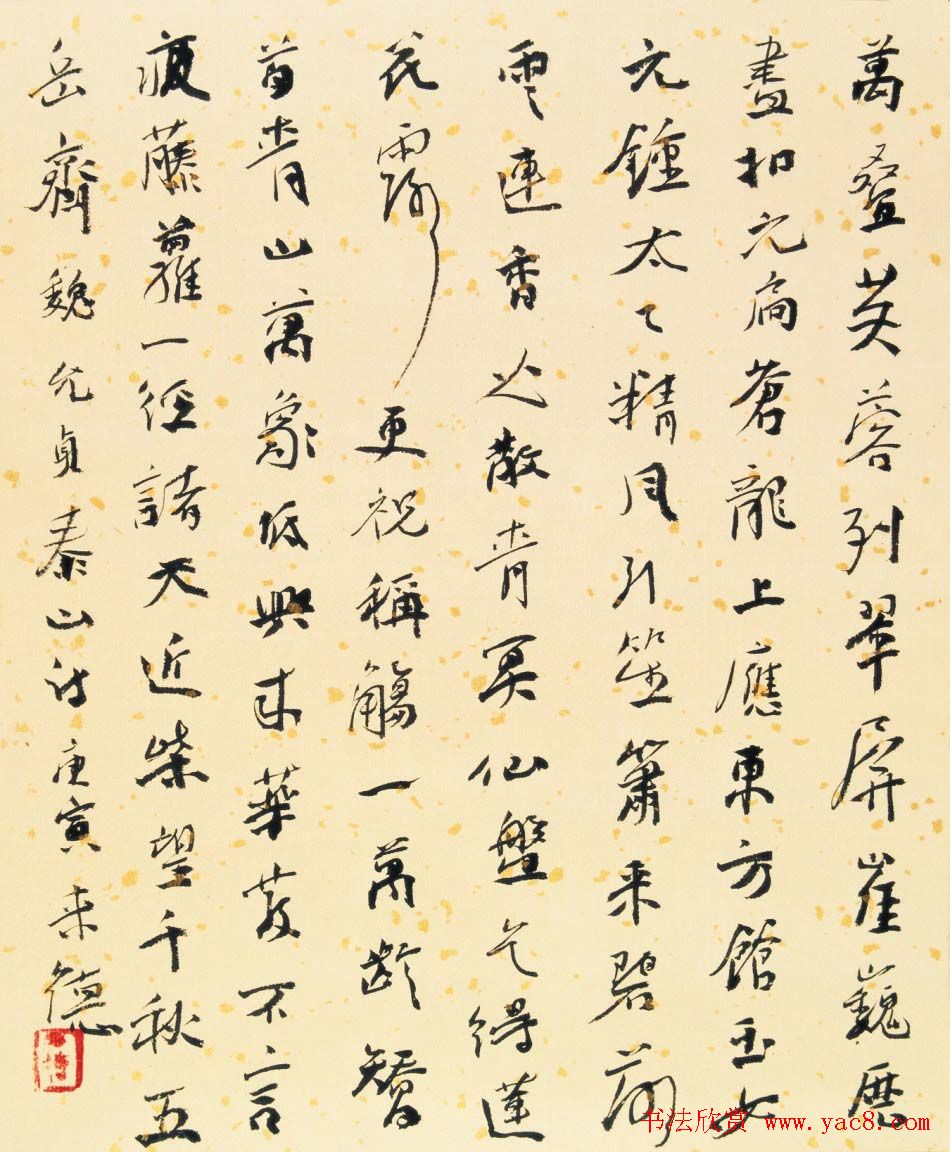 萬叠芙蓉列翠屏崔巍歷
盡扣元扃蒼龍上應東方舘玉女
元鍾太乙精月引笙簫来碧落
雲連香火散青冥仙盤乞得蓮
花露更祝稱觴一萬齡矯
首青山萬象低興来華髮不言
疲藤蘿一徑諸天近柴望千秋五
岳齊魏允貞泰山詩庚寅来德
书法欣赏 www.yac8.com